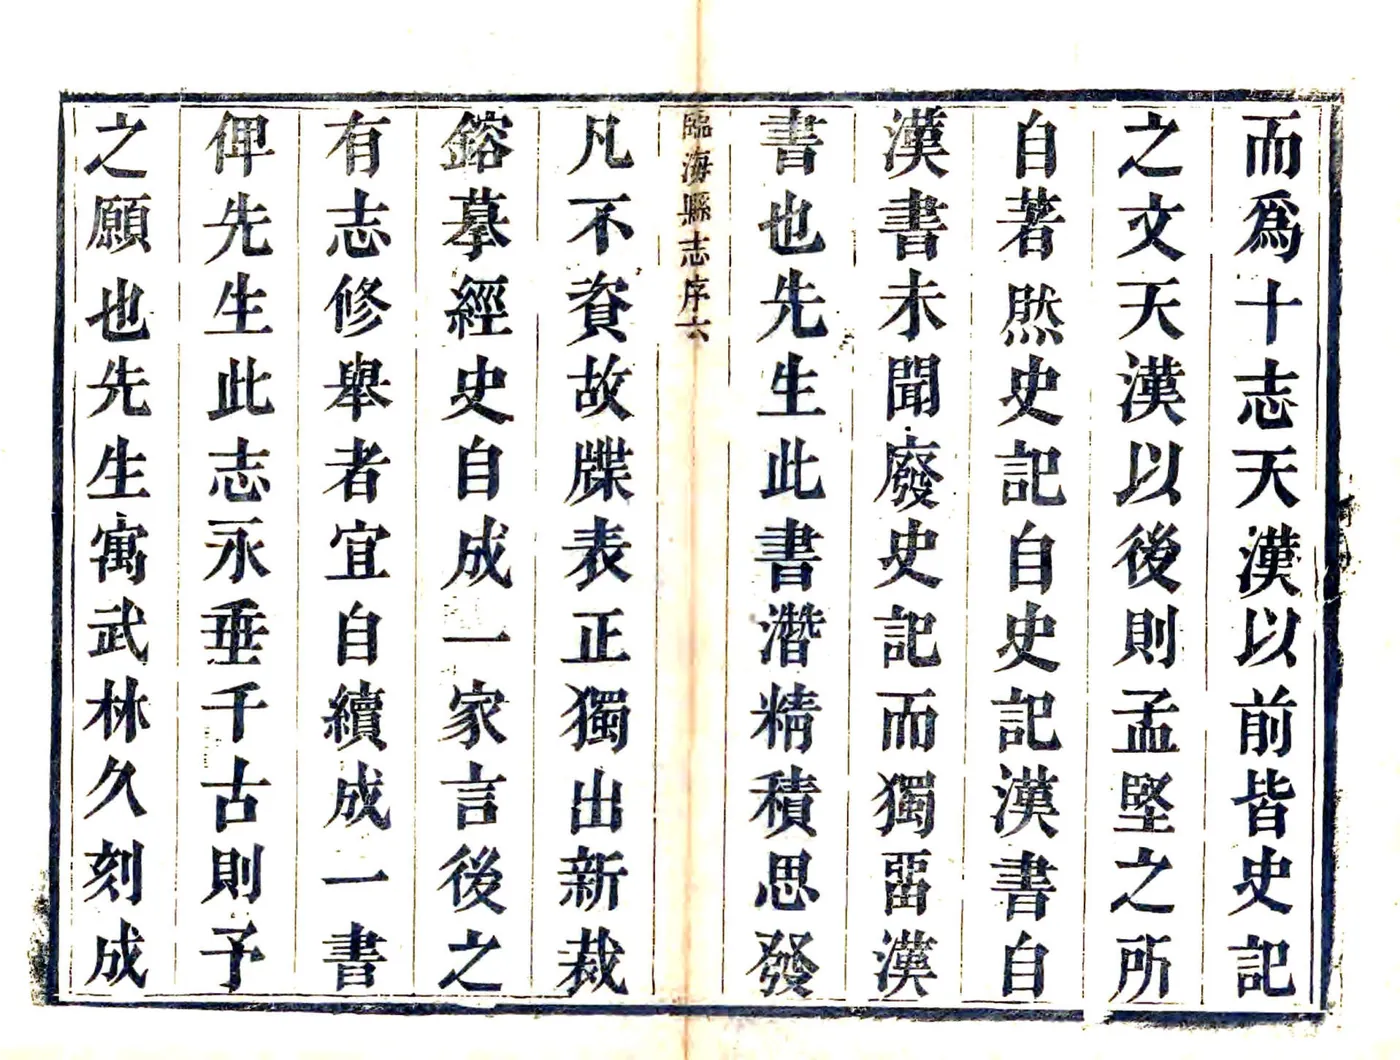 而爲十志天漢以前皆史記
之文天漢以後則孟堅之所
自著然史記自史記漢書自
漢書未聞廢史記而獨畱漢
書也先生此書潛精積思發
臨海縣志序六
凡不資故牒表正獨出新裁
鎔摹經史自成一家言後之
有志修舉者宜自續成一書
俾先生此志永垂千古則予
之願也先生寓武林久刻成